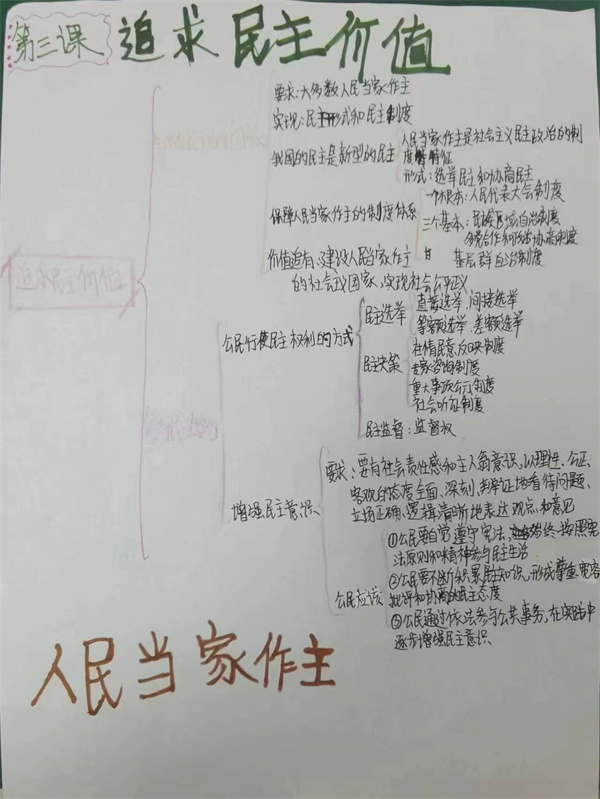 第三课
追求民主价值
要求：大多数人民当家作主
实现：民主形式和民主制度
我国的民主是新型的民主
人民当家作主是社会主义民主政治的制
特征
形式：选举民主和协商民主
保障人民当家作主的制度体系
一个根本：人民代表大会制度
三个基本：民族区域自治制度
基层群自治制度
价值追有：建设人民当家作主
的社会主义国家，实现社会公平正义
追求民主价值
公民行使民主权利的方式
民主选举
直接选举、间接选举
等额选举、差额选举
民主决策
社情民意反映制度
专家咨询制度
重大事项公示制度
社会听证制度
民主监督：监督权
增强民主意识
要求：要有社会责任感和主人翁意识，以理性、公正、
客观的态度全面、深刻、辩证地看待问题、
立场正确、逻辑清晰地表达观点和意见
公民应该
①公民要自觉遵守宪法，始终按照宪
法原则和精神参与民主生活
②公民要不断积累民主知识，形成尊重宽容
批评和协商的民主态度
③公民通过依法参与公共事务，在实践中
逐步增强民主意识
人民当家作主